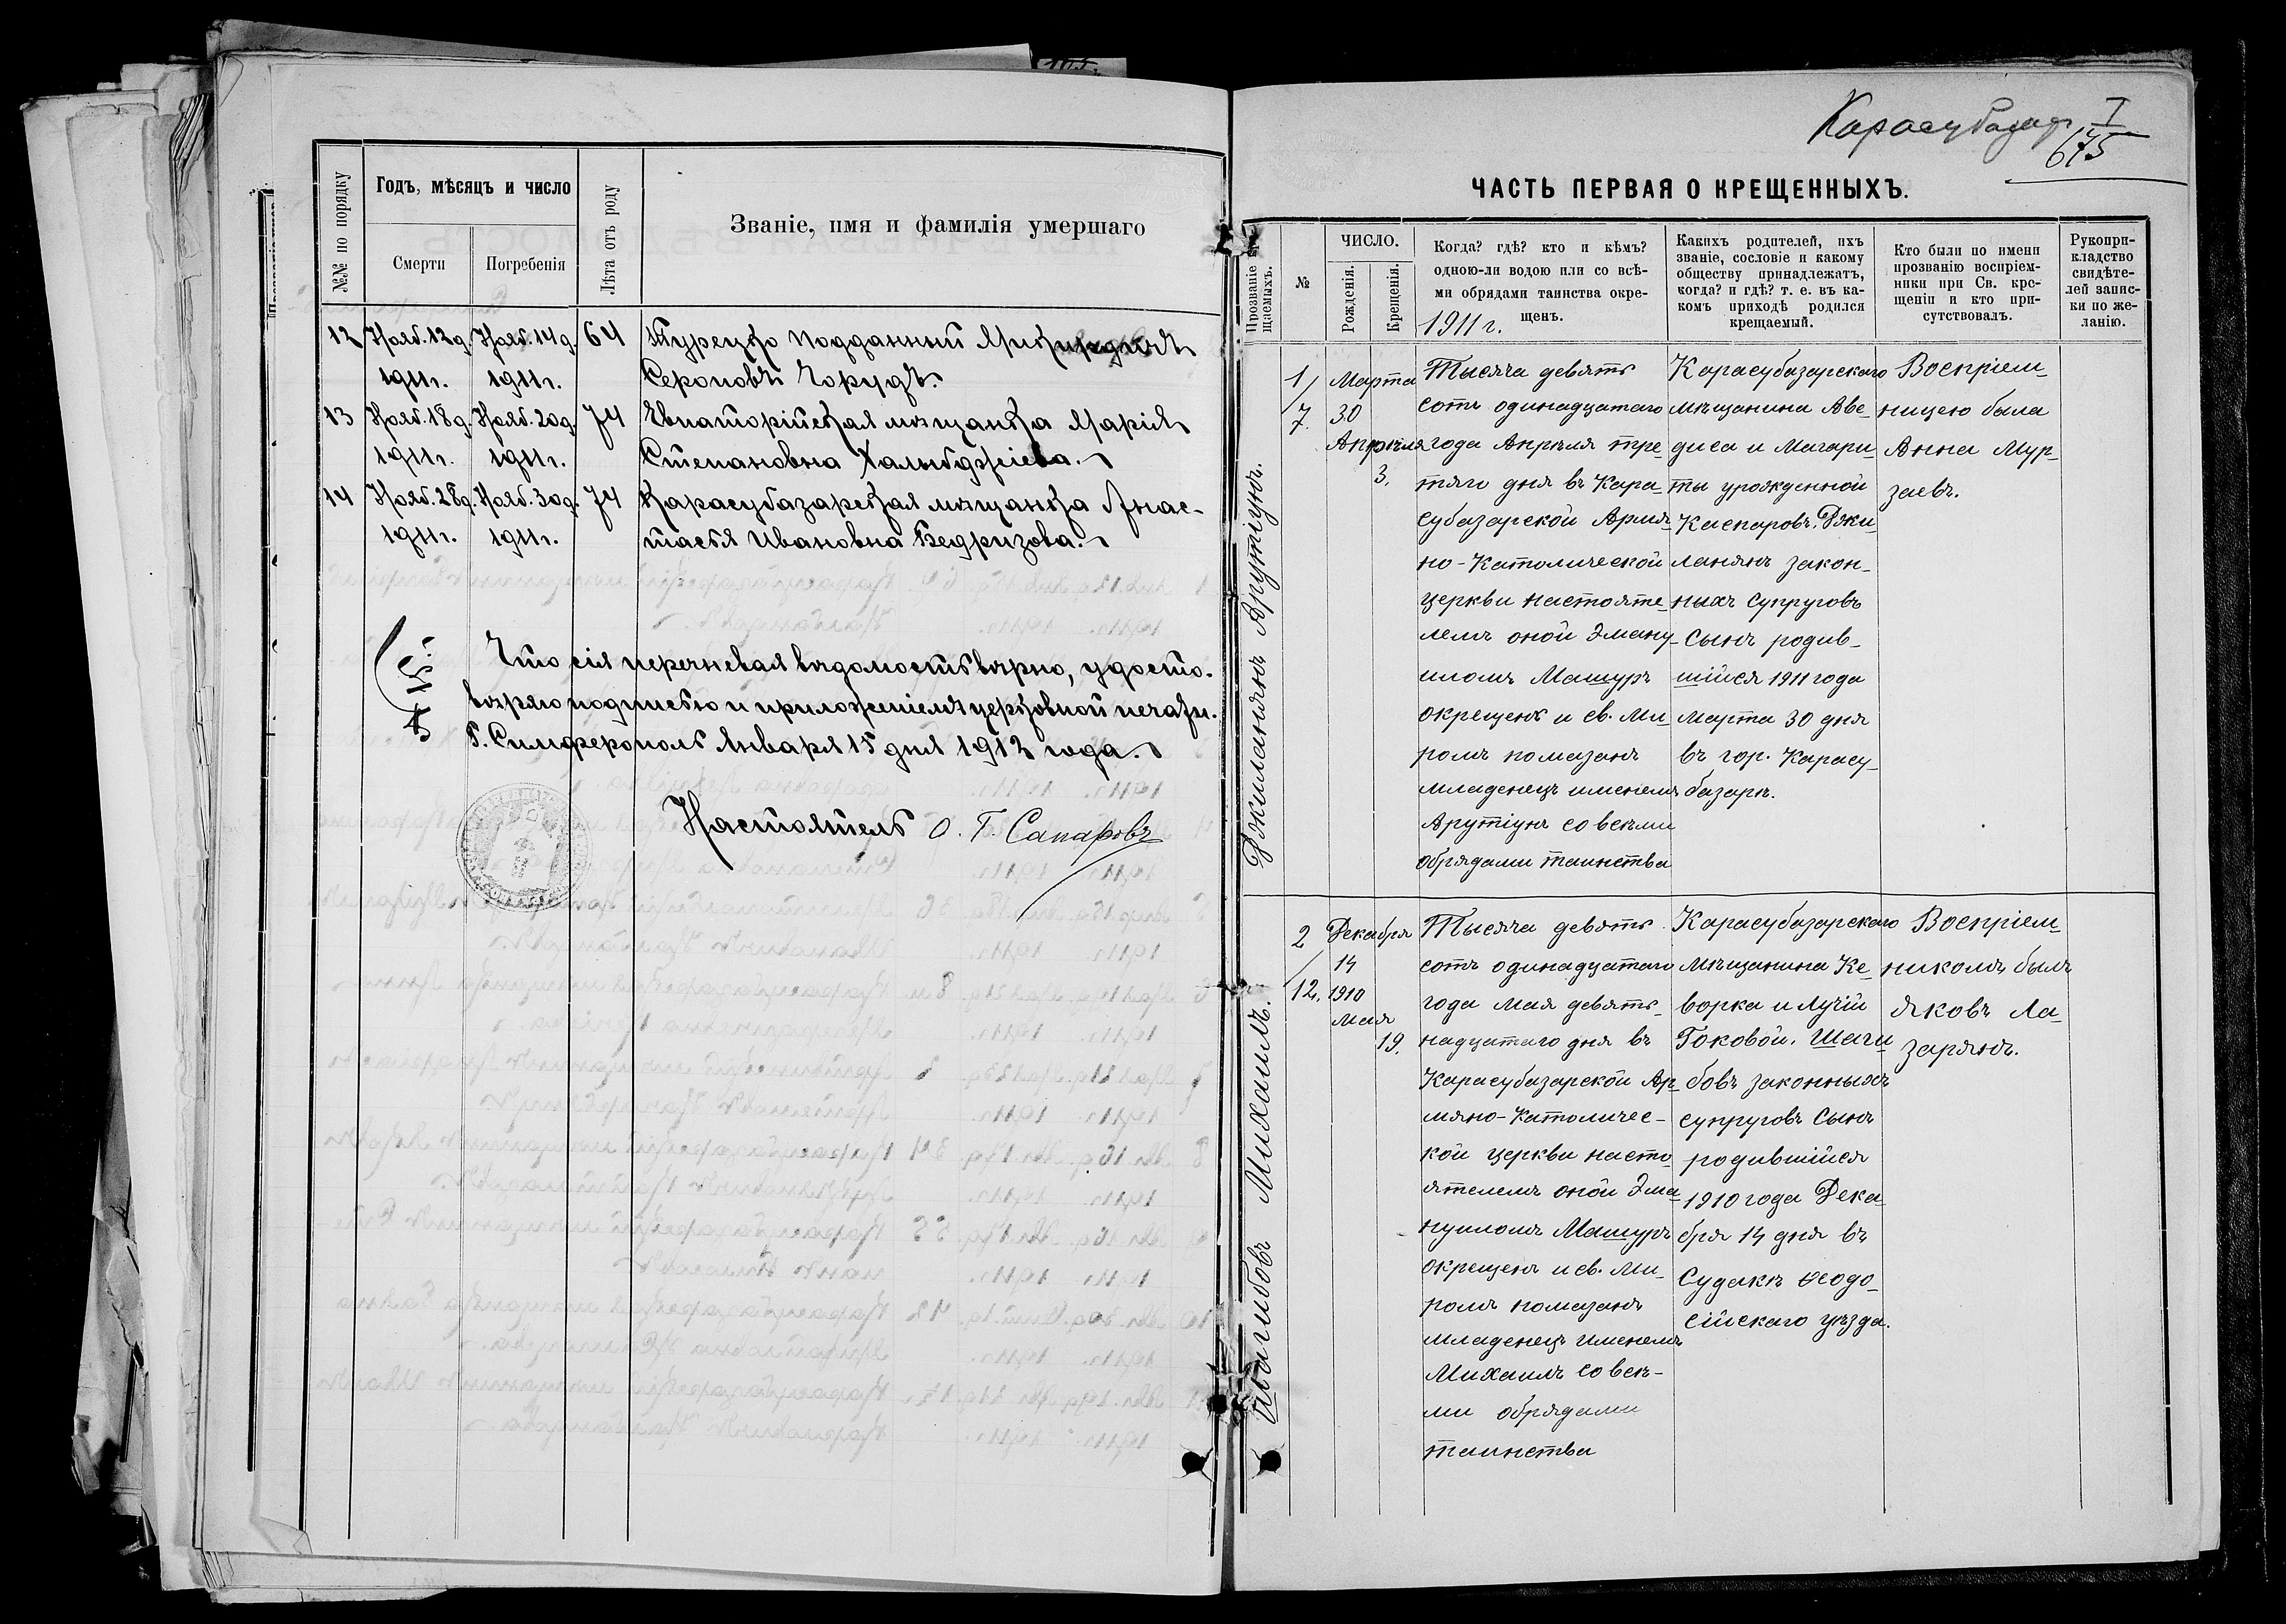 №№ по порядку
Годъ, мѣсяцъ и число
Смерти
Погребенія
Лѣта отъ роду
Званіе, имя и фамилія умершаго
12 Нояб. 12 д. Нояб. 14 д. 64 Турецко подданный
1911 г. 1911 г. Сероповъ Чорудъ.
13 Нояб. 18 д. Нояб. 20 д. 74 Евпаторійская мѣщанка Марія
1911 г. 1911 г. Степановна Халыбджіева.
14 Нояб. 28 д. Нояб. 30 д. 74 Карасубазарская мѣщанка Анас-
1911 г. 1911 г. тасья Ивановна Бедризова.
Что сія перечневая вѣдомость вѣрно, удосто-
вѣряю подписью и приложеніемъ церковной печати.
Г. Симферополь Января 15 дня 1912 года.
Настоятель О. Г. Сапаровъ
Карасубазаръ I
675
ЧАСТЬ ПЕРВАЯ О КРЕЩЕННЫХЪ.
№
ЧИСЛО.
Рожденія.
Крещенія.
Когда? гдѣ? кто и кѣмъ?
одною-ли водою или со всѣ-
ми обрядами таинства окре-
щенъ.
1911 г.
Какихъ родителей, ихъ
званіе, сословіе и какому
обществу принадлежатъ,
когда? и гдѣ? т. е. въ ка-
комъ приходѣ родился
крещаемый.
Кто были по имени
прозванію воспріем-
ники при Св. кре-
щеніи и кто при-
сутствовалъ.
Рукопри-
кладство
свидѣте-
лей записки по же-
ланію.
Джиланянъ Арутіунъ.
1/7.
Марта
30
Апрѣля
3.
Тысяча девять
сотъ одинадцатаго
года Апрѣля тре-
тяго дня въ Кара-
субазарской Армя-
но-Католической
церкви настояте-
лемъ оной Эману-
иломъ Машуръ
окрещенъ и св. Ми-
ромъ помазанъ
младенецъ именемъ
Арутіунъ со всѣми
обрядами таинства
Карасубазарскаго
мѣщанина Аве-
диса и Магари-
ты урожденной
Каспаровъ, Джи-
ланянъ закон-
ныхъ супруговъ
Сынъ родив-
шійся 1911 года
марта 30 дня
въ гор. Карасу-
базарѣ.
Воспріем-
ницею была
Анна Мур-
заевъ.
Шагибовъ Михаилъ.
2/12.
Декабря
14
1910
Мая
19.
Тысяча девять
сотъ одинадцатаго
года мая девять-
надцатаго дня въ
Карасубазарской Ар-
мяно-Католичес-
кой церкви насто-
ятелемъ оной Эма-
нуиломъ Машуръ
окрещенъ и св. Ми-
ромъ помазанъ
младенецъ именемъ
Михаилъ со всѣ-
ми обрядами
таинства
Карасубазарскаго
мѣщанина Ке-
ворка и Лучіи
Гоковой, Шаги-
бовъ законныхъ
супруговъ Сынъ
родившійся
1910 года Дека-
бря 14 дня въ
Судакѣ Ѳеодо-
сійскаго уѣзда.
Воспріем-
никомъ былъ
Яковъ Ла-
зарянъ.